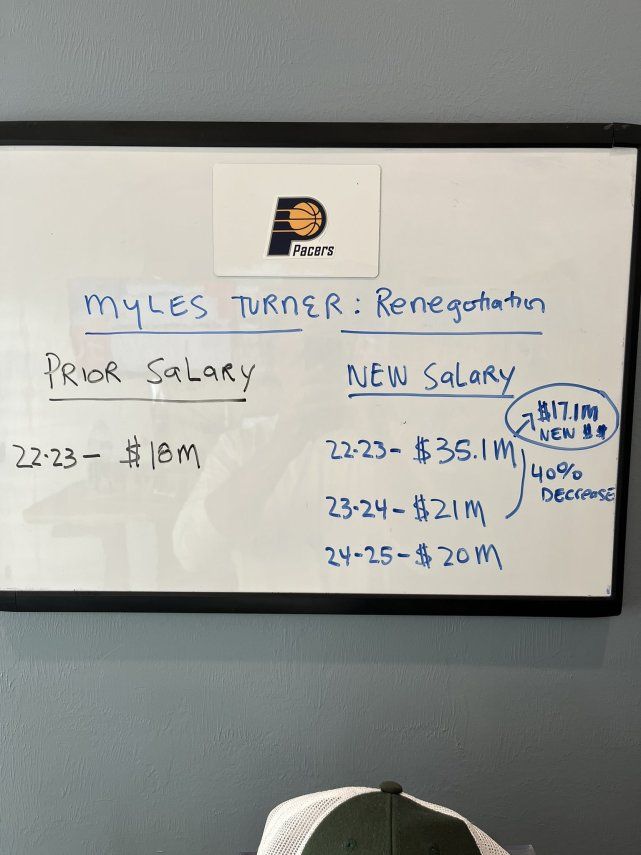 Pacers
MYLES TURNER: Renegotiation
PRIOR SALARY
NEW SALARY
22-23- $18M
22-23- $35.1M
$17.1M
NEW $$
40%
DECREASE
23-24- $21M
24-25- $20M